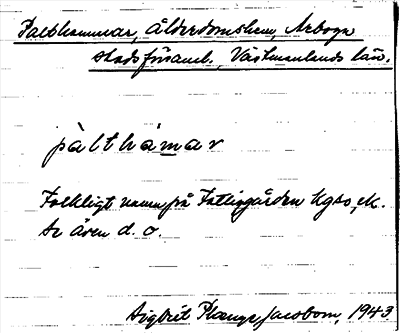 Palthammar, Ålderdomshem, Arboga
stadsförsaml., Västmanlands län.
pàlthámar
Folkligt namn på Fattiggården kgso, ek.
Se även d. o.
Sigbrit Plænge Jacobson, 1943